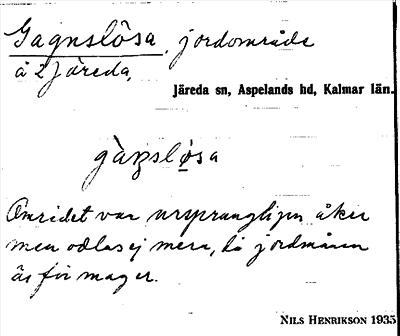 Gagnslösa, jordområde
å 2 Järeda,
Järeda sn, Aspelands hd, Kalmar län.
gàŋsløsa
Området var ursprungligen åker
men odlas ej mera, då jordmånen
är för mager.
NILS HENRIKSON 1935